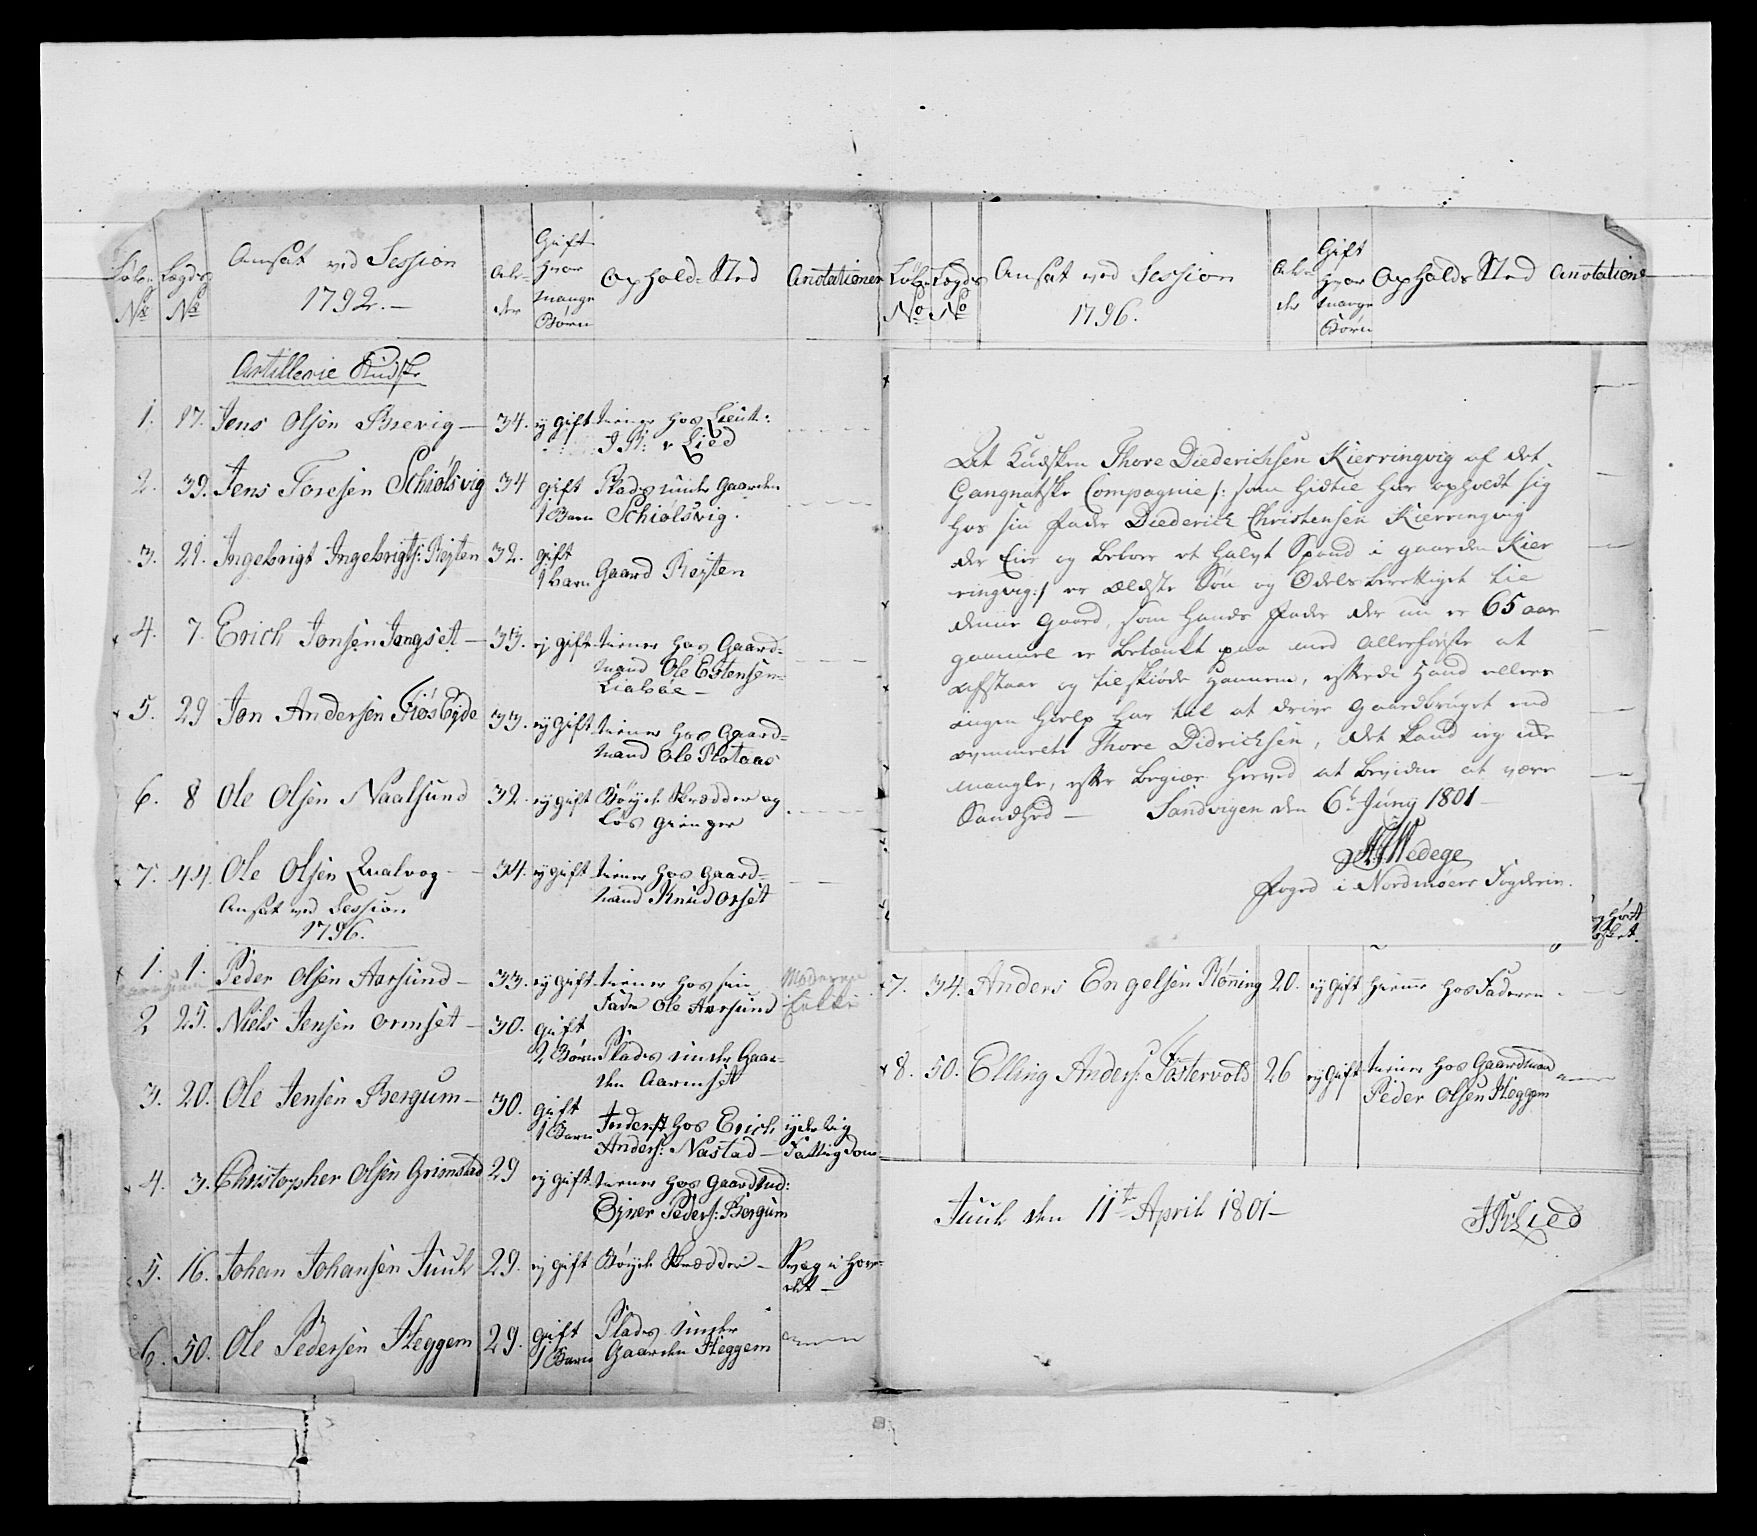 Løbe Lægds Ansat ved Session Al- Gift Ophold-Sted Anotationer
No No 1792.- der hvor mange Børn
Artillerie Kudske
1. 17. Jens Olsen Brevig - 34. ej gift tiener hos Lieut:
J. R: v Lied
2. 39. Jens Toresen Schiølsvig 34 gift Plads under Gaarden
1 Barn Schiølsvig.
3. 21. Ingebrigt Ingebrigts: Røjten 32. gift
1 barn Gaard Røjten
4. 7. Erich Jonsen Jongset - 33. ej gift tiener hos Gaard-
mand Ole Estensen
Liabøe -
5. 29 Jon Andersen Fiøs Eyde 33. ej gift tiener hos Gaard-
mand Ole Plataas
6. 8 Ole Olsen Naalsund 32. ej gift Bøyde Skrædder og
Løs gienger
7. 44. Ole Olsen Qualvog - 34. ej gift tiener hos Gaard-
mand Knud Orset
Ansat ved Session
1796.
1. 1. Peder Olsen Aarsund - 33. ej gift tiener hos sin Moderen
Fader Ole Aarsund Enke
2 25. Niels Jensen Ormset - 30. gift
2 Børn Plads under Gaar-
den Aarmset
3. 20. Ole Jensen Bergum - 30. gift
1 Barn Inderst hos Erich yderlig
Anders: Nastad - Fattigdom
4. 3. Christopher Olsen Grimstad 29 ej gift tiener hos Gaardmd:
Ejner Peders: Bergum
5. 16. Johan Johansen Juul 29. ej gift Bøyde Skrædder - Svag i Hove-
det -
6. 50. Ole Pedersen Heggem 29. gift Plads under
1 Barn Gaarden Heggem
Løbe Lægds Ansat ved Session Al- Gift Opholds Sted Anotatione
No No 1796. der hvor mange Børn
At Kudsken Thore Diederichsen Kierringvig af det
Gangnatske Compagnie /: som hidtil har opholdt sig
hos sin Fader Diederich Christensen Kierringvig
der Eier og beboer et halvt Spand i gaarden Kier
ringvig:/ er ældste Søn og Odels berettiget til
denne Gaard, som hands Fader der nu er 65 aar
gammel er betænkt paa med allerførste at
afstaae og tilskiøde hannem, efterdi hand ellers
ingen hielp har til at drive Gaardbruget end
ovenmelte Thore Didrichsen, det kand ieg ikke
mangle, efter begiær herved at bevidne at være
Sandhed - Sandvigen den 6te Junÿ 1801 -
Wedege
Foged i Nordmøers Fogderie.
7. 34. Anders Engelsen Rønning 20. ej gift hiemme hos Faderen
8. 50. Elling Anders: Fostervold 26 ej gift tiener hos Gaardmand
Peder Olsen Heggem
Juul den 11te April 1801 - J R v Lied